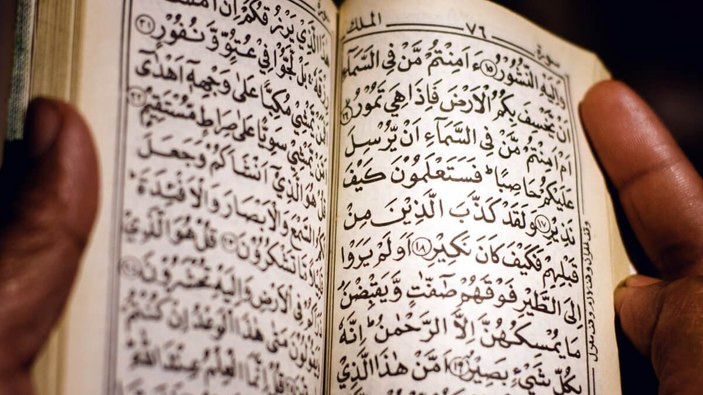 سورة ٧٦ الملك
وَاِلَيْهِ النُّشُوْرُ ﴿١٥﴾ ءَاَمِنْتُمْ مَّنْ فِى السَّمَآءِ
اَنْ يَّخْسِفَ بِكُمُ الْاَرْضَ فَاِذَا هِيَ تَمُوْرُ ﴿١٦﴾
اَمْ اَمِنْتُمْ مَّنْ فِى السَّمَآءِ اَنْ يُّرْسِلَ
عَلَيْكُمْ حَاصِبًا ؕ فَسَتَعْلَمُوْنَ كَيْفَ
نَذِيْرِ ﴿١٧﴾ وَلَقَدْ كَذَّبَ الَّذِيْنَ مِنْ
قَبْلِهِمْ فَكَيْفَ كَانَ نَكِيْرِ ﴿١٨﴾ اَوَلَمْ يَرَوْا
اِلَى الطَّيْرِ فَوْقَهُمْ صٰٓفّٰتٍ وَّيَقْبِضْنَ
مَا يُمْسِكُهُنَّ اِلَّا الرَّحْمٰنُ ؕ اِنَّهٗ
بِكُلِّ شَيْءٍۢ بَصِيْرٌ ﴿١٩﴾ اَمَّنْ هٰذَا الَّذِيْ
سورة
هٰذَا الَّذِيْ يَرْزُقُكُمْ اِنْ اَمْسَكَ
رِزْقَهٗ ۚ بَلْ لَّجُّوْا فِيْ عُتُوٍّ وَّنُفُوْرٍ ﴿٢١﴾
اَفَمَنْ يَّمْشِيْ مُكِبًّا عَلٰى وَجْهِهٖٓ اَهْدٰٓى
اَمَّنْ يَّمْشِيْ سَوِيًّا عَلٰى صِرَاطٍ مُّسْتَقِيْمٍ ﴿٢٢﴾
قُلْ هُوَ الَّذِيْٓ اَنْشَاَكُمْ وَجَعَلَ
لَكُمُ السَّمْعَ وَالْاَبْصَارَ وَالْاَفْـِٕدَةَ ؕ
قَلِيْلًا مَّا تَشْكُرُوْنَ ﴿٢٣﴾ قُلْ هُوَ الَّذِيْ
ذَرَاَكُمْ فِى الْاَرْضِ وَاِلَيْهِ تُحْشَرُوْنَ ﴿٢٤﴾
وَيَقُوْلُوْنَ مَتٰى هٰذَا الْوَعْدُ اِنْ كُنْتُمْ
قُلْ اِنَّمَا الْعِلْمُ عِنْدَ اللّٰهِ